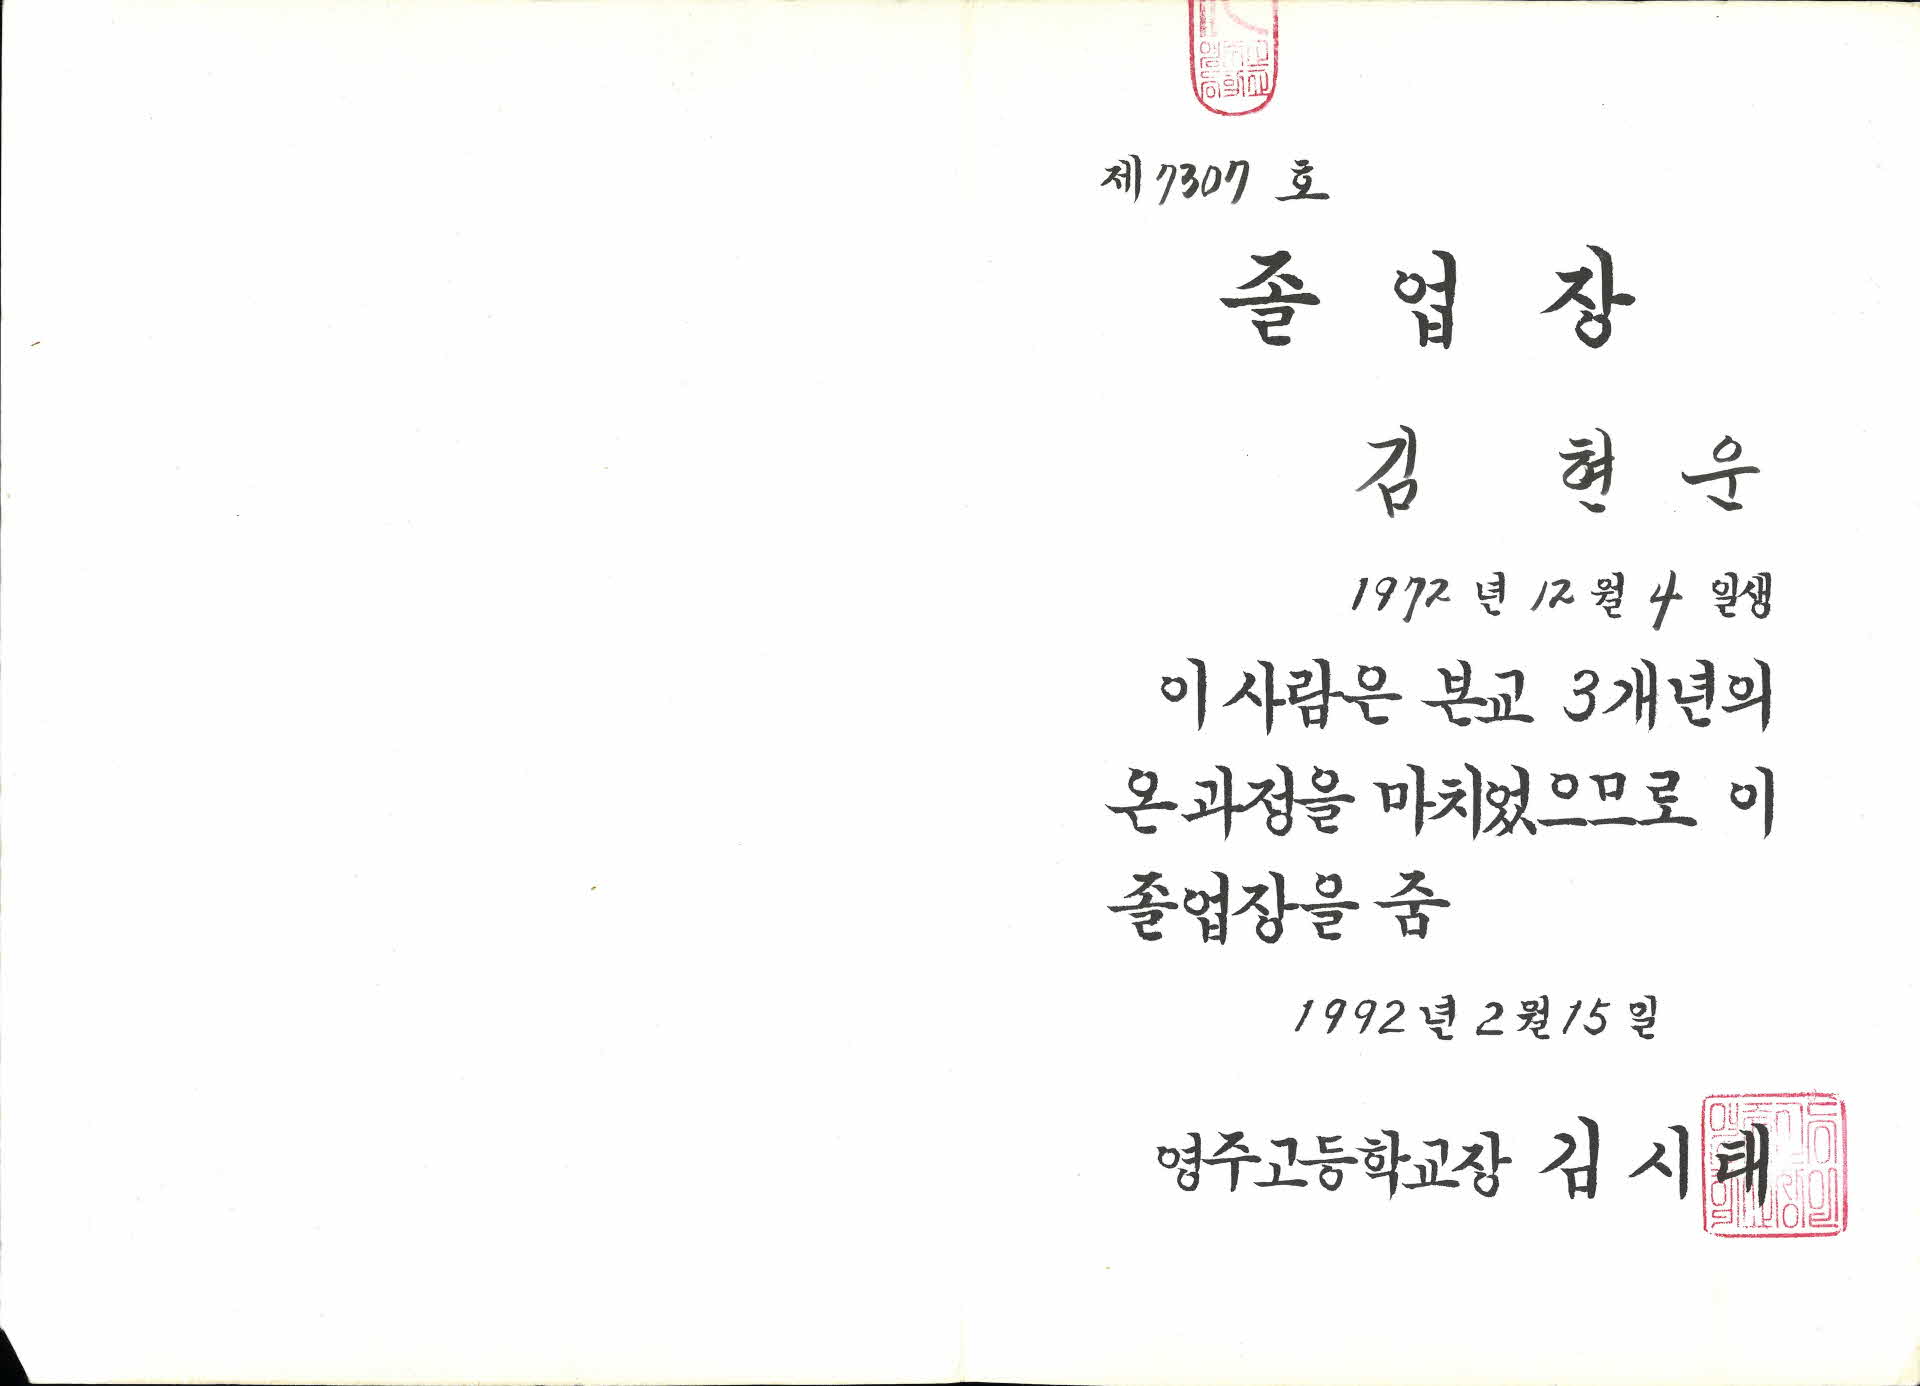 제 7307 호
졸업장
김 현 운
1972 년 12 월 4 일생
이 사람은 본교 3개년의
온과정을 마치었으므로 이
졸업장을 줌
1992 년 2 월 15 일
영주고등학교장 김 시 태